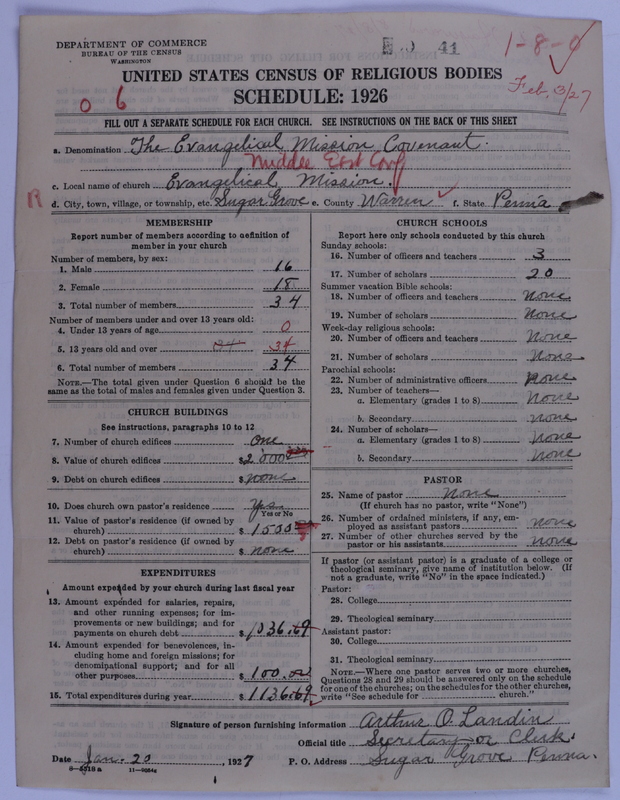 DEPARTMENT OF COMMERCE
BUREAU OF THE CENSUS
WASHINGTON
41
1-8-
Feb. 3/27
UNITED STATES CENSUS OF RELIGIOUS BODIES
SCHEDULE: 1926
0 6
FILL OUT A SEPARATE SCHEDULE FOR EACH CHURCH. SEE INSTRUCTIONS ON THE BACK OF THIS SHEET
a. Denomination The Evangelical Mission Covenant.
Middle East Conf
c. Local name of church Evangelical Mission.
R d. City, town, village, or township, etc. Sugar Grove e. County Warren f. State Penna
MEMBERSHIP
Report number of members according to definition of
member in your church
Number of members, by sex:
1. Male 16
2. Female 18
3. Total number of members 34
Number of members under and over 13 years old:
4. Under 13 years of age 0
5. 13 years old and over 34
6. Total number of members 34
NOTE.—The total given under Question 6 should be the
same as the total of males and females given under Question 3.
CHURCH BUILDINGS
See instructions, paragraphs 10 to 12
7. Number of church edifices One
8. Value of church edifices $2000
9. Debt on church edifices $none
10. Does church own pastor's residence Yes
Yes or No
11. Value of pastor's residence (if owned by
church) $1500
12. Debt on pastor's residence (if owned by
church) $none
EXPENDITURES
Amount expended by your church during last fiscal year
13. Amount expended for salaries, repairs,
and other running expenses; for im-
provements or new buildings; and for
payments on church debt $1036.69
14. Amount expended for benevolences, in-
cluding home and foreign missions; for
denominational support; and for all
other purposes $100.00
15. Total expenditures during year $1136.69
CHURCH SCHOOLS
Report here only schools conducted by this church
Sunday schools:
16. Number of officers and teachers 3
17. Number of scholars 20
Summer vacation Bible schools:
18. Number of officers and teachers None
19. Number of scholars None
Week-day religious schools:
20. Number of officers and teachers None
21. Number of scholars None
Parochial schools:
22. Number of administrative officers None
23. Number of teachers—
a. Elementary (grades 1 to 8) None
b. Secondary None
24. Number of scholars—
a. Elementary (grades 1 to 8) None
b. Secondary None
PASTOR
25. Name of pastor None
(If church has no pastor, write "None")
26. Number of ordained ministers, if any, em-
ployed as assistant pastors none
27. Number of other churches served by the
pastor or his assistants none
If pastor (or assistant pastor) is a graduate of a college or
theological seminary, give name of institution below. (If
not a graduate, write "No" in the space indicated.)
Pastor:
28. College
29. Theological seminary
Assistant pastor:
30. College
31. Theological seminary
NOTE.—Where one pastor serves two or more churches,
Questions 28 and 29 should be answered only on the schedule
for one of the churches; on the schedules for the other churches,
write "See schedule for church."
Signature of person furnishing information Arthur O. Landin
Official title Secretary or Clerk.
Date Jan. 20, 1927 P. O. Address Sugar Grove Penna.
8-5518a 11-9264